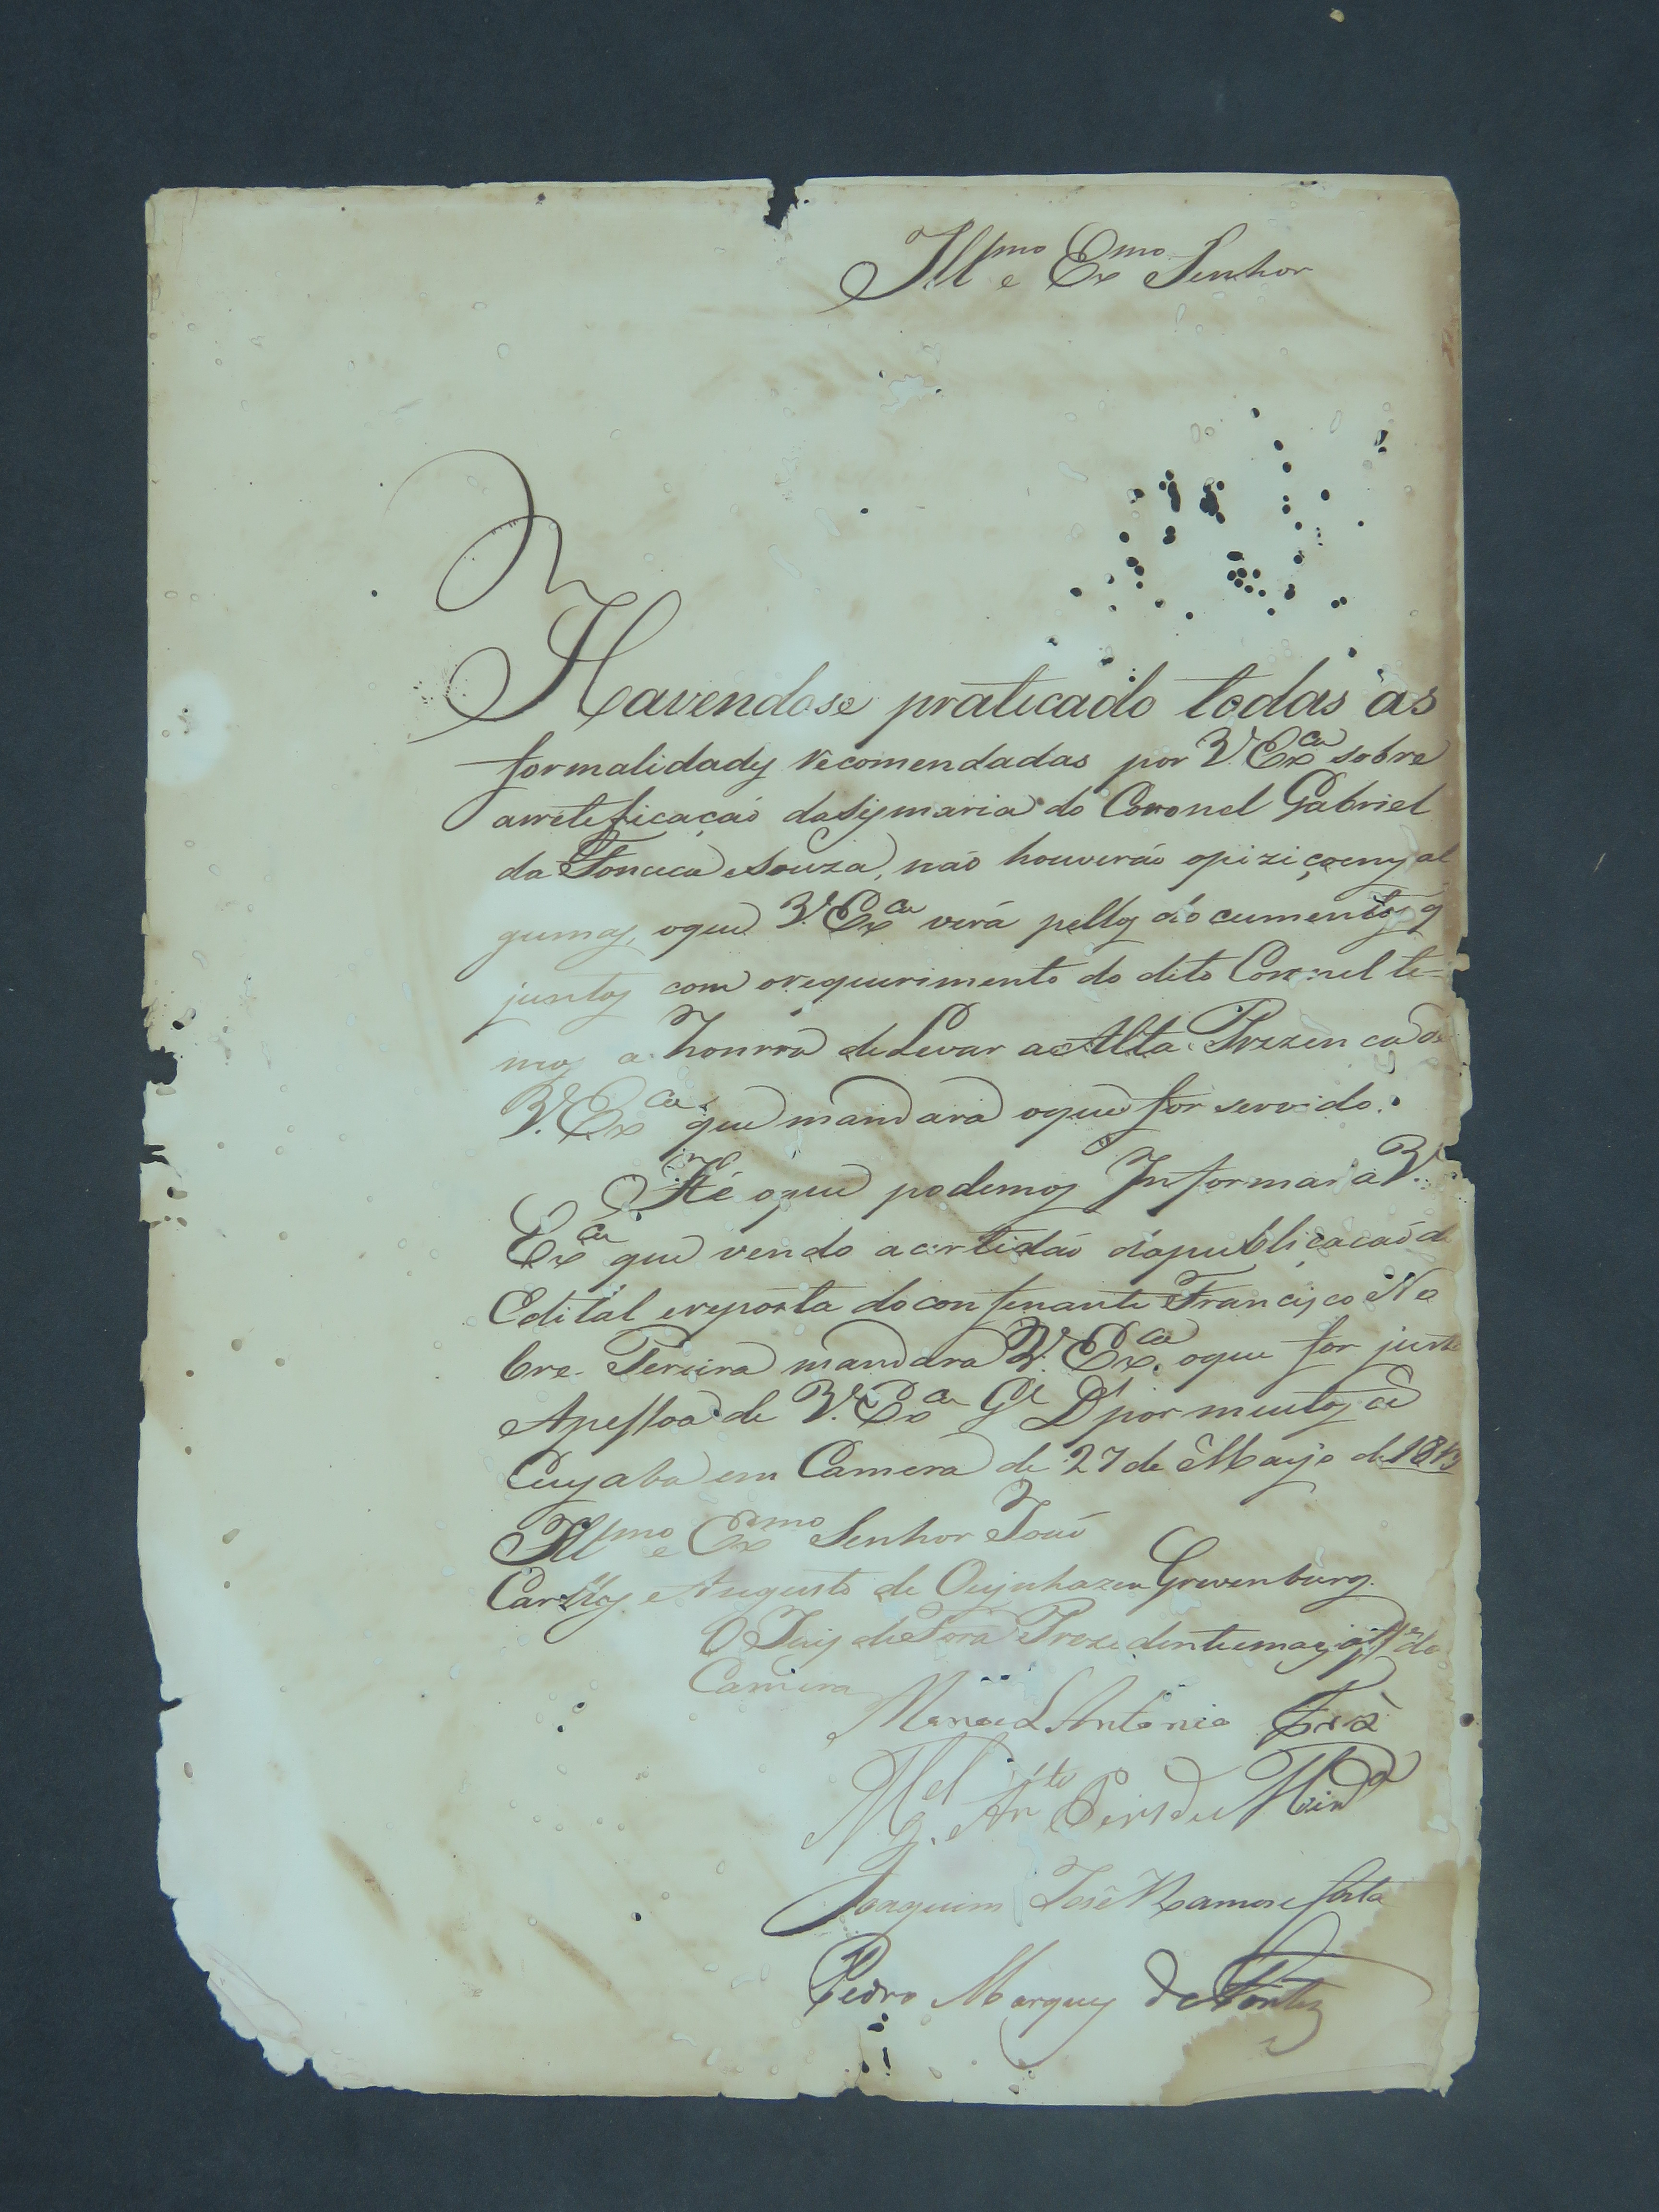 Ill.mo e Ex.mo Senhor
Havendose praticado todas as
formalidades recomendadas por V. Ex.ca sobre
arretificacaó daSismaria do Coronel Gabriel
da Fonceca eSouza, naó houveraó opiziçoens al
gumas, oque V. Ex.ca verá pellos documentos q
juntos com orequerimento do dito Coronel te=
mos a honrra deLevar a Alta Prezenca de
V. Ex.ca que mandara oque for servido.
Hé oque podemos Informar a V.
Ex.ca que vendo acertidaó dapublicacaó d
Edital ereposta doconfinante Francisco No
bre Pereira mandara V. Ex.ca oque for justo
Apessoa de V. Ex.ca G.e D.s por muitos a
Cuyaba em Camera de 27 de Mayo de
Ill.mo e Ex.mo Senhor Joaó
Carllos Augusto de Oeynhazen Grevenburg.
O Juis deFora Prezidente mais da
Camera
Manoel Antonio
M.el An.to Pires de
Joaquim José Ramos e Costa
Pedro Marques de Pontes